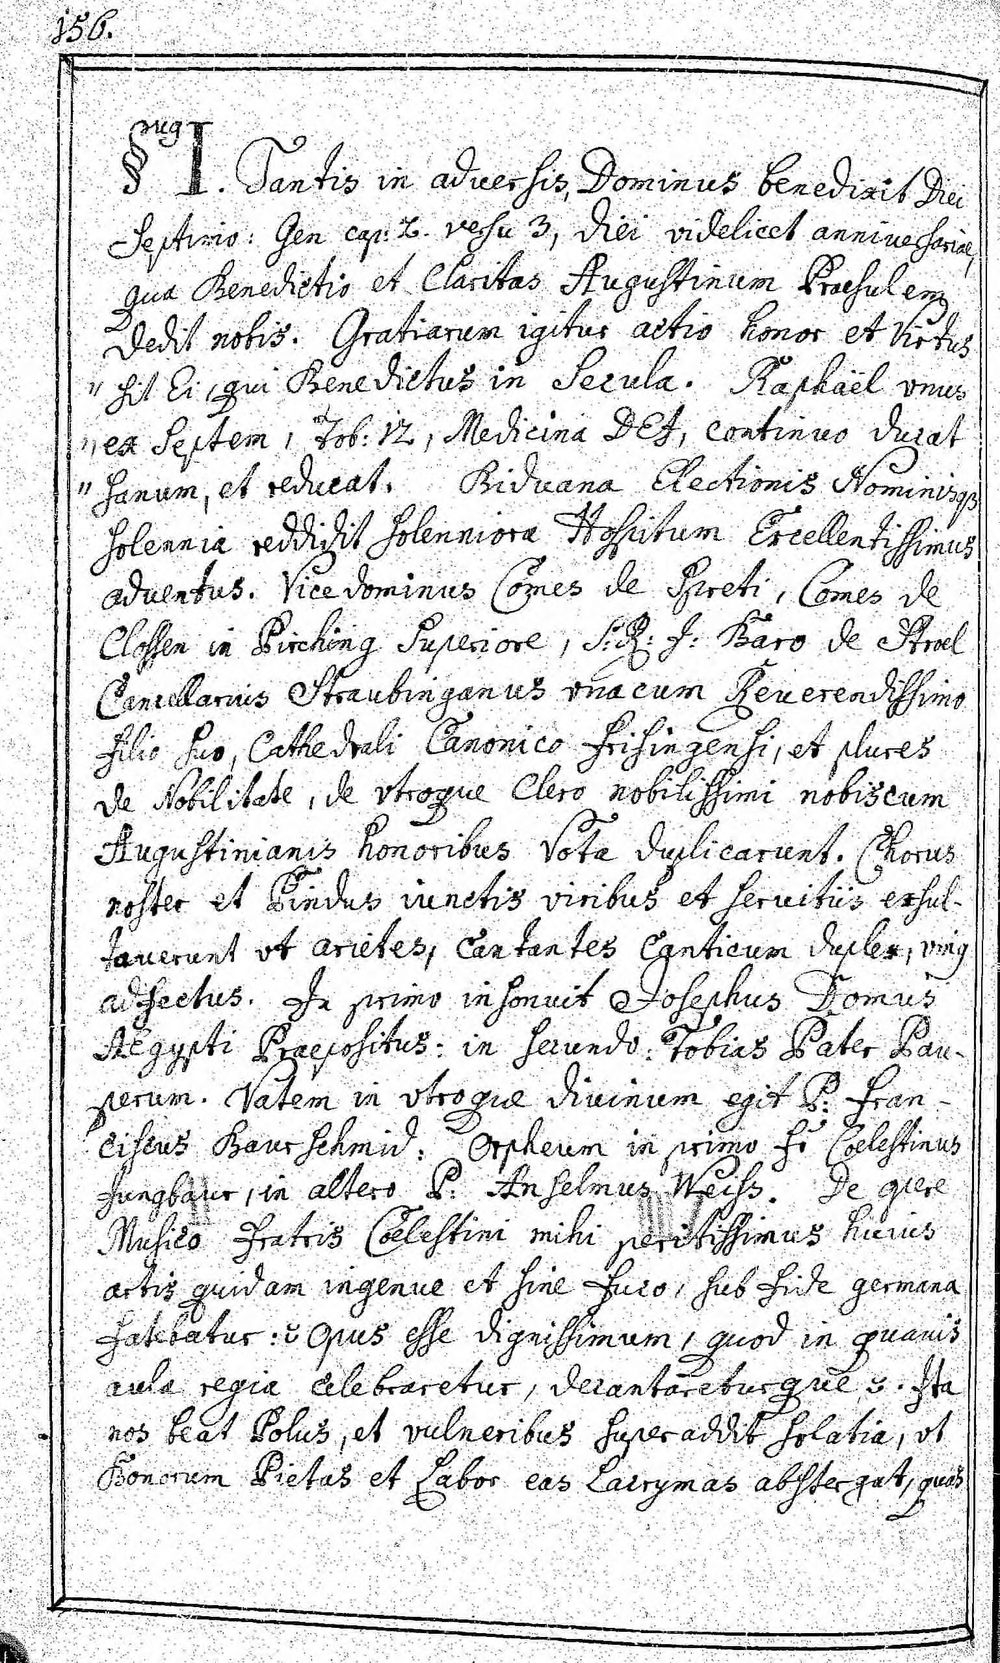 156.
§ug I. Tantis in aduersis, Dominus benedixit Diei
Septimo: Gen cap: 2. versu 3, diei videlicet anniuersariae,
qua Benedictio et Claritas Augustinum Praesulem
dedit nobis. Gratiarum igitur actio honor et Virtus
" sit Ei, qui Benedictus in Secula. Raphaël vnus
" ex Septem, Tob: 12, Medicina DEJ, continuo ducat
" sanum, et reducat. Biduana Electionis Nominisq3
solennia reddidit solenniora Hospitum Excellentissimus
aduentus. Vicedominus Comes de Spreti, Comes de
Clossen in Pirching Superiore, S: R: J: Baro de Stroel
Cancellarius Straubinganus vnacum Reuerendissimo
filio suo, Cathedrali Canonico Frisingensi, et plures
de Nobilitate, de vtroque Clero nobilissimi nobiscum
Augustinianis honoribus Vota duplicarunt. Chorus
noster et Pindus iunctis viribus et seruitiis exsul-
tauerunt vt arietes, Cantantes Canticum duplex, vnig
adfectus. In primo insonuit Josephus Domus
AEgypti Praepositus: in secundo: Tobias Pater Pau-
perum. Vatem in vtroque diuinum egit P: Fran-
ciscus Baurschmid: Orpheum in primo Fr Coelestinus
Jungbaur, in altero P: Anselmus Weiss. De opere
Musico Fratris Coelestini mihi peritissimus huius
artis quidam ingenue et sine fuco, sub fide germana
fatebatur: Opus esse dignissimum, quod in quauis
aula regia celebraretur, decantareturque. Ita
nos beat Polus, et vulneribus superaddit solatia, vt
Honorum Pietas et Labor eas Lacrymas abstergat, quas